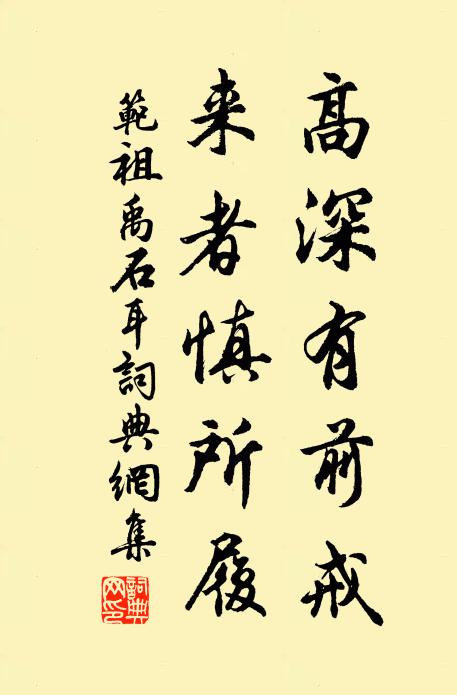 高深有前戒
来者慎所履
範祖禹石耳詞典網集
詞典
网印